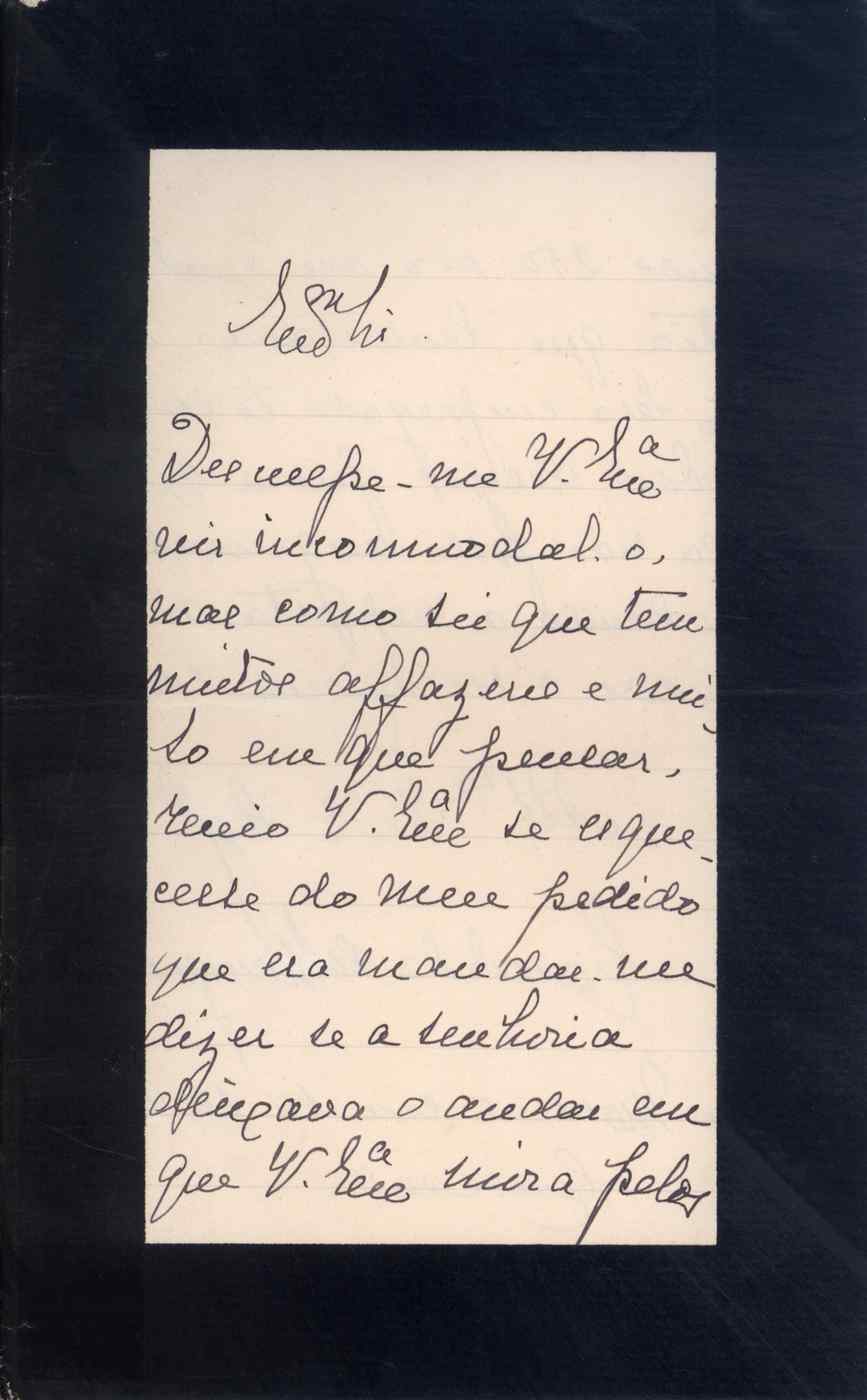 Exmo Sr.
Desculpe-me V. Exa
vir incommodal-o,
mas como sei que tem
muitos affazeres e mui-
to em que pensar,
receio V. Exa se esque-
cesse do meu pedido
que era mandar-me
dizer se a senhoria
alugava o andar em
que V. Exa mora pelos